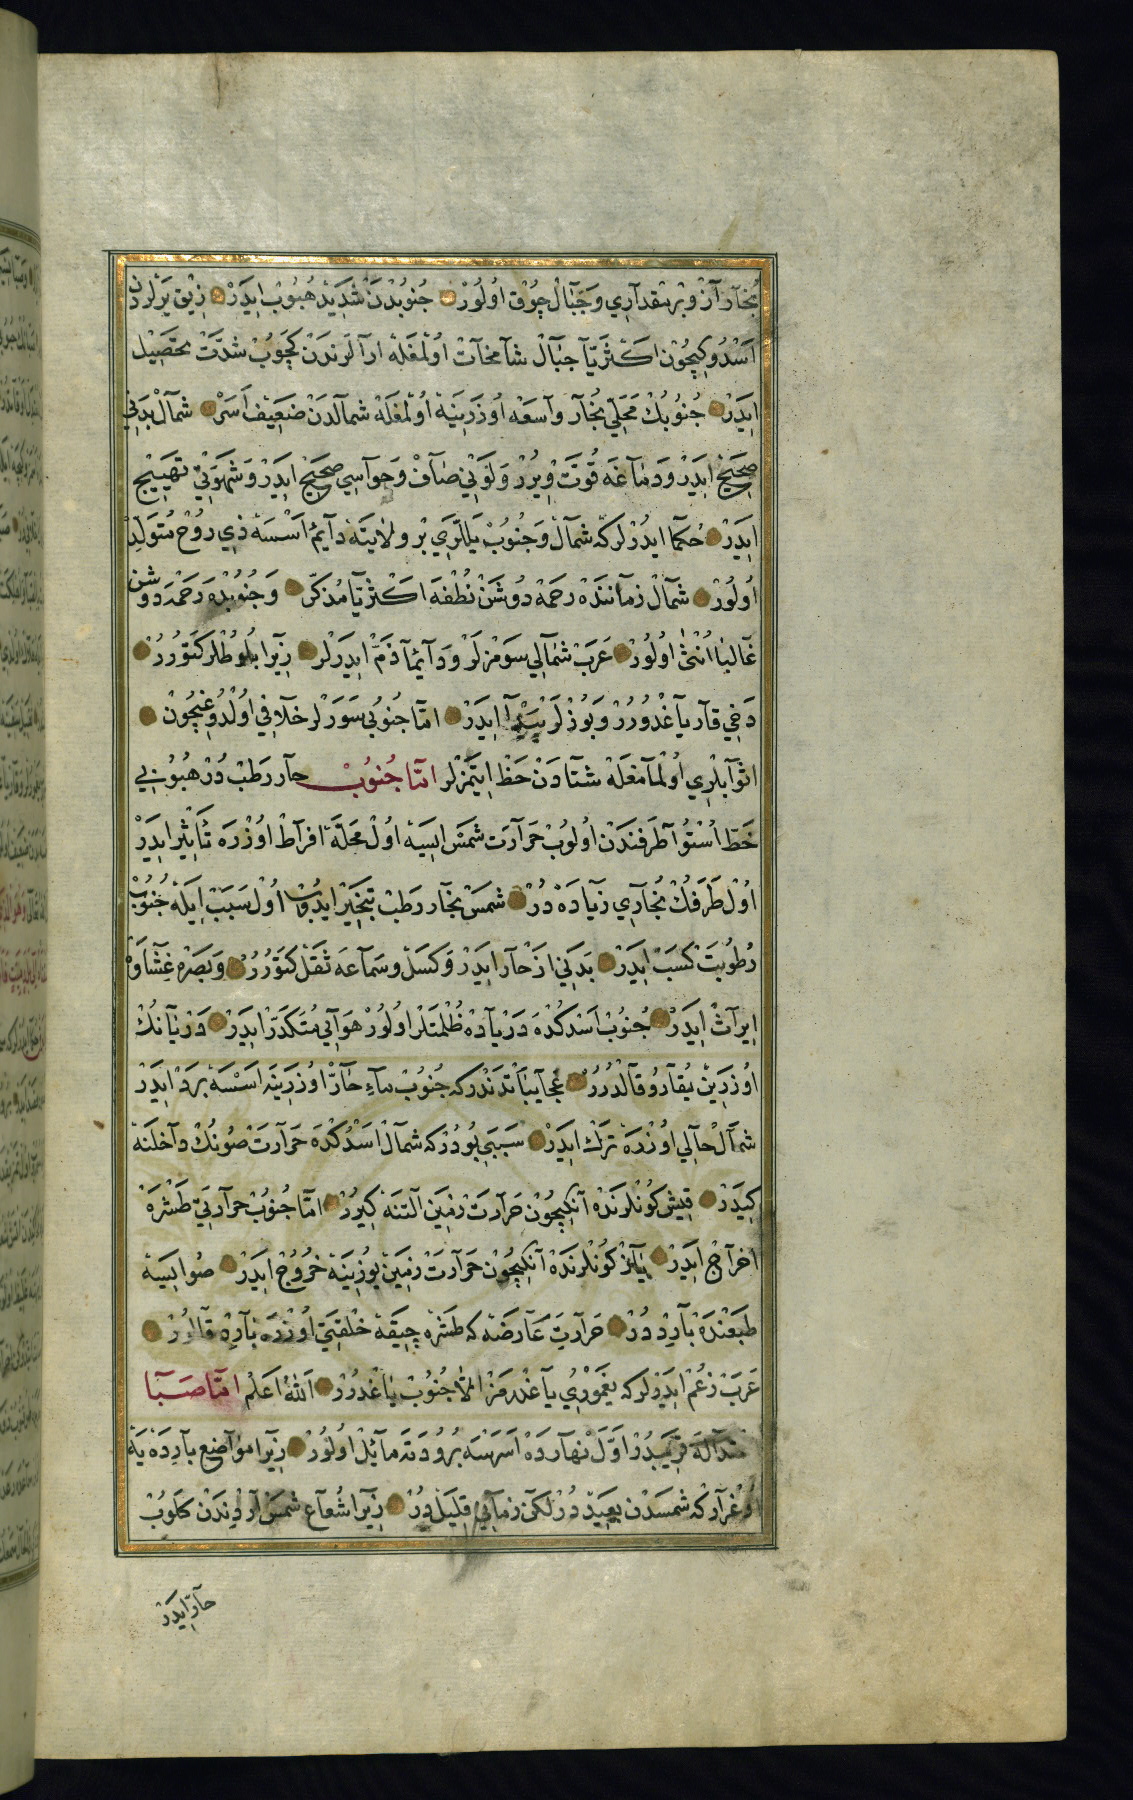 بُخَارْ آزْ وبرّ مقدَارِي وَجِبَالْ چُوْقْ اُولُورْ جُنُوبْدَنْ شَدِيدْ هُبُوبْ ايدَرْ زِيقْ يَرلَردَنْ
اَسْدُوكِيچُونْ اكَثَرِيّا جِبَالْ شَامِخَاتْ اُولْمَغْلَهْ ارَالَرندَنْ كَچُوبْ شدَّتْ تحصِيل
ايدَرْ جُنُوبُكْ مَحَلِّي بُخَارْ وَاسعَهْ اُوزَرِينَهْ اُولْمَغْلَهْ شمالدَنْ ضَعِيفْ اَسَرْ شمَالْ بدَنِي
صحِيحْ ايدَرْ وَدمَاغَهْ قُوَّتْ وِيرُرْ وَلَوْنِي صَافْ وَحوَاسِي صحِيحْ ايدَرْ وَشَهوَتِي تَهيِيجْ
ايدَرْ حُكَمَا ايدُرْلَركَهْ شمَالْ وَجُنُوبْ يَللّرِي بْر ولايتَهْ دَايِمْ اَسْسَهْ ذِي رُوحْ مُتَولِّدْ
اُولُورْ شمَالْ زمَاننَدَهْ رَحمَهْ دُوشَنْ نُطْفَهْ اكَثرِيّا مُذكّر وَجُنُوبْدَهْ رَحْمَهْ دوشن
غَالبَا اُنْثٰى اُولُورْ عَرَبْ شمَالِي سَومَزلَرْ وَدَايْمَا ذَمّ ايدَرلَر زِيرَا بُلُوطْلَر كَتُورُرْ
دَخِي قَارْ يَاغْدُورُرْ وَبُوزْلَرْ پَيْدَا ايدَرْ امّا جُنُوبِي سَوَرلَر خلَافِي اُولْدُوغِيچُونْ
اثوَابلَرِي اُولمَامَغلَهْ شتَادَنْ حَظْ ايتمَزلَر امّا جُنُوبْ حَارْ رَطبْ دُرْ هُبُوبِي
خَطّ اُسْتُوَا طَرَفندَنْ اُولُوبْ حَرَارَت شمَسْ ايسَهْ اُولْ مَحَلَّهْ افرَاطْ اوُزْرَهْ تَاثِيرْ ايدَرْ
اوُلْ طَرَفُكْ بُخَارِي زيَادَهْ دُرْ شمَسْ بُخَارْ رطَبْ تبَخِيرْ ايدُوبْ اوُلْ سَبَبْ ايلَهْ جُنُوبْ
رُطُوبَتْ كَسَبْ ايدَرْ بَدَنِي ازْ حَارْ ايدَرْ وَكسَلْ وسَمَاعَهْ ثقَلْ كَتُورُرْ وَبَصَرَهْ غِشَاوَهْ
ايرَاثْ ايدَرْ جُنُوبْ اَسَدكْدَهْ دَرْيَادَهْ ظُلمتَلَر اُولُورْ هَوَايِي مُتكَدَّرْ ايدَرْ دَرْيَانُكْ
اوُزرِينْ يُقَارُو قَالْدُرُرْ عجَايبَاتدَنْدر كه جُنُوبْ مَاءِ حَارّ اوُزَرِينَه اَسْسَهْ بَردْ ايدَرْ
شمَالْ حَالِي اوُزْرَهْ تَركْ ايدَرْ سَبَبِي بُودُرْ كه شمَالْ اَسْدُكْدَهْ حَرَارَتْ صُونُكْ دَاخلنَهْ
كِيدَرْ قِيشْ كُونْلَرنَدَهْ آنِكِيچُونْ حَرَارَتْ زمِينْ الْتنَهْ كِيرُرْ امّا جُنُوبْ حرَارَتِي طَشْرَهْ
اخرَاجْ ايدَرْ يَازْ كُونْلَرندَهْ آنِكِيچُونْ حَرَارَتْ زمِينْ يُوزِينَهْ خُرُوجْ ايدَرْ صُو ايسَهْ
طَبعْندَهْ بَارِدْ دُرْ حَرَارَتِ عَارضَهْ كه طَشرَهْ چيقَهْ خلْقَتِي اوُزْرَه بَارِدْ قَالُورْ
عَرَبْ زعُمْ ايدَرلَر كه يَغمُورِي يَاغْدرمَزْ الّا جُنُوبْ يَاغْدُرُرْ اَللهُ اعَلَمْ امّا صَبَا
قرِيبْدُرْ اوّلْ نهَاردَهْ اَسَرْسَه بُرُودَتَه مَائِلْ اُولُورْ زِيرَا موَاضعِ بَارِدَهْ يَهْ
اوُغرَارْ كه شمسدَنْ بعِيدْ دُرْ لكنْ زمَانِي قلِيلَدُرْ زِيرَا شُعَاع شمَسْ آردِندَنْ كَلُوبْ
حَارّ ايدَرْ